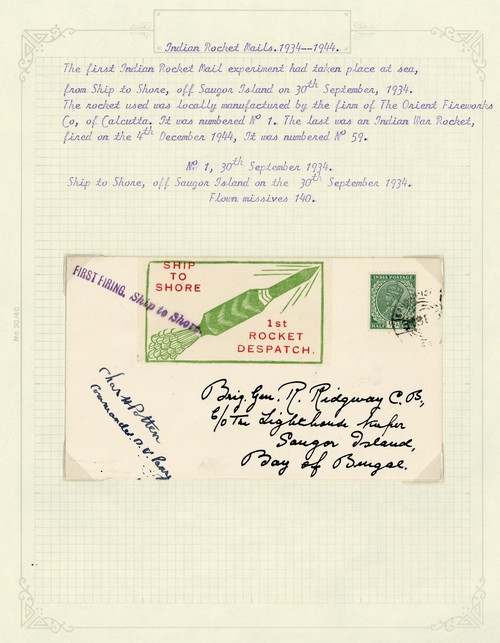 Indian Rocket Mails.1934--1944.
The first Indian Rocket Mail experiment had taken place at sea,
from Ship to Shore, off Saugor Island on 30th September, 1934.
The rocket used was locally manufactured by the firm of The Orient Fireworks
Co, of Calcutta. It was numbered Nº 1. The last was an Indian War Rocket,
fired on the 4th December 1944, It was numbered Nº 59.
Nº 1, 30th September 1934.
Ship to Shore, off Saugor Island on the 30th September 1934.
Flown missives 140.
FIRST FIRING. Ship to Shore.
SHIP
TO
SHORE
1st
ROCKET
DESPATCH.
INDIA POSTAGE
HALF
Brig. Gen. R. Ridgway C.B,
C/o The Lighthouse Keeper
Saugor Island,
Bay of Bengal.
Commander